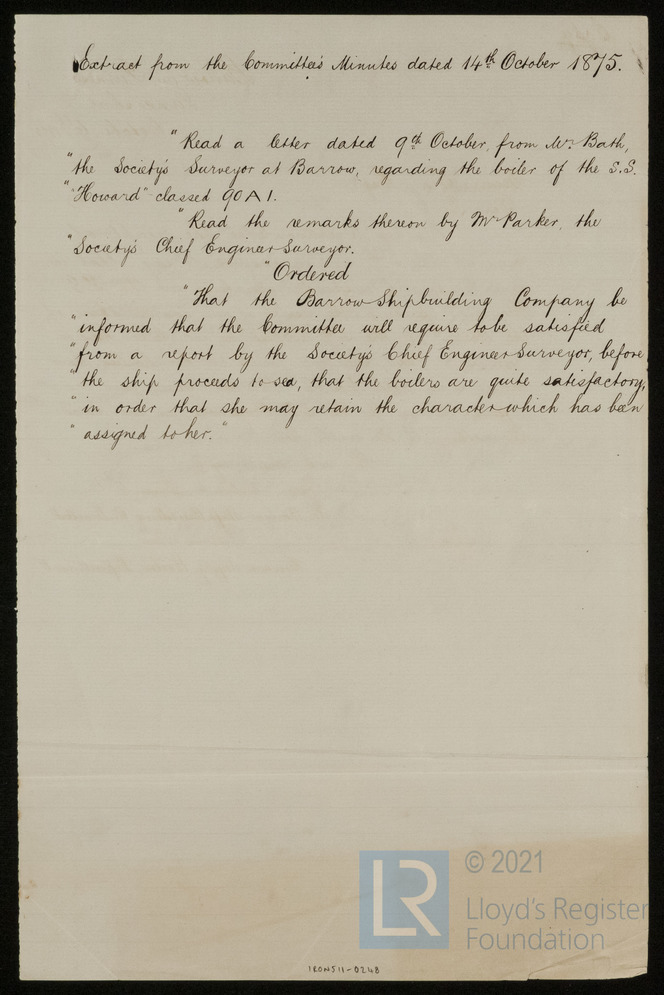 Extract from the Committee's Minutes dated 14th October 1875.
"Read a letter dated 9th October, from Mr. Bath,
"the Society's Surveyor at Barrow, regarding the boiler of the S.S.
"'Howard" classed 90A1.
"Read the remarks thereon by Mr Parker, the
"Society's Chief Engineer Surveyor.
"Ordered
"That the Barrow Shipbuilding Company be
"informed that the Committee will require to be satisfied
"from a report by the Society's Chief Engineer Surveyor, before
"the ship proceeds to sea, that the boilers are quite satisfactory,
"in order that she may retain the character which has been
"assigned to her."
LR
© 2021
Lloyd's Register
Foundation
IRON511-0248